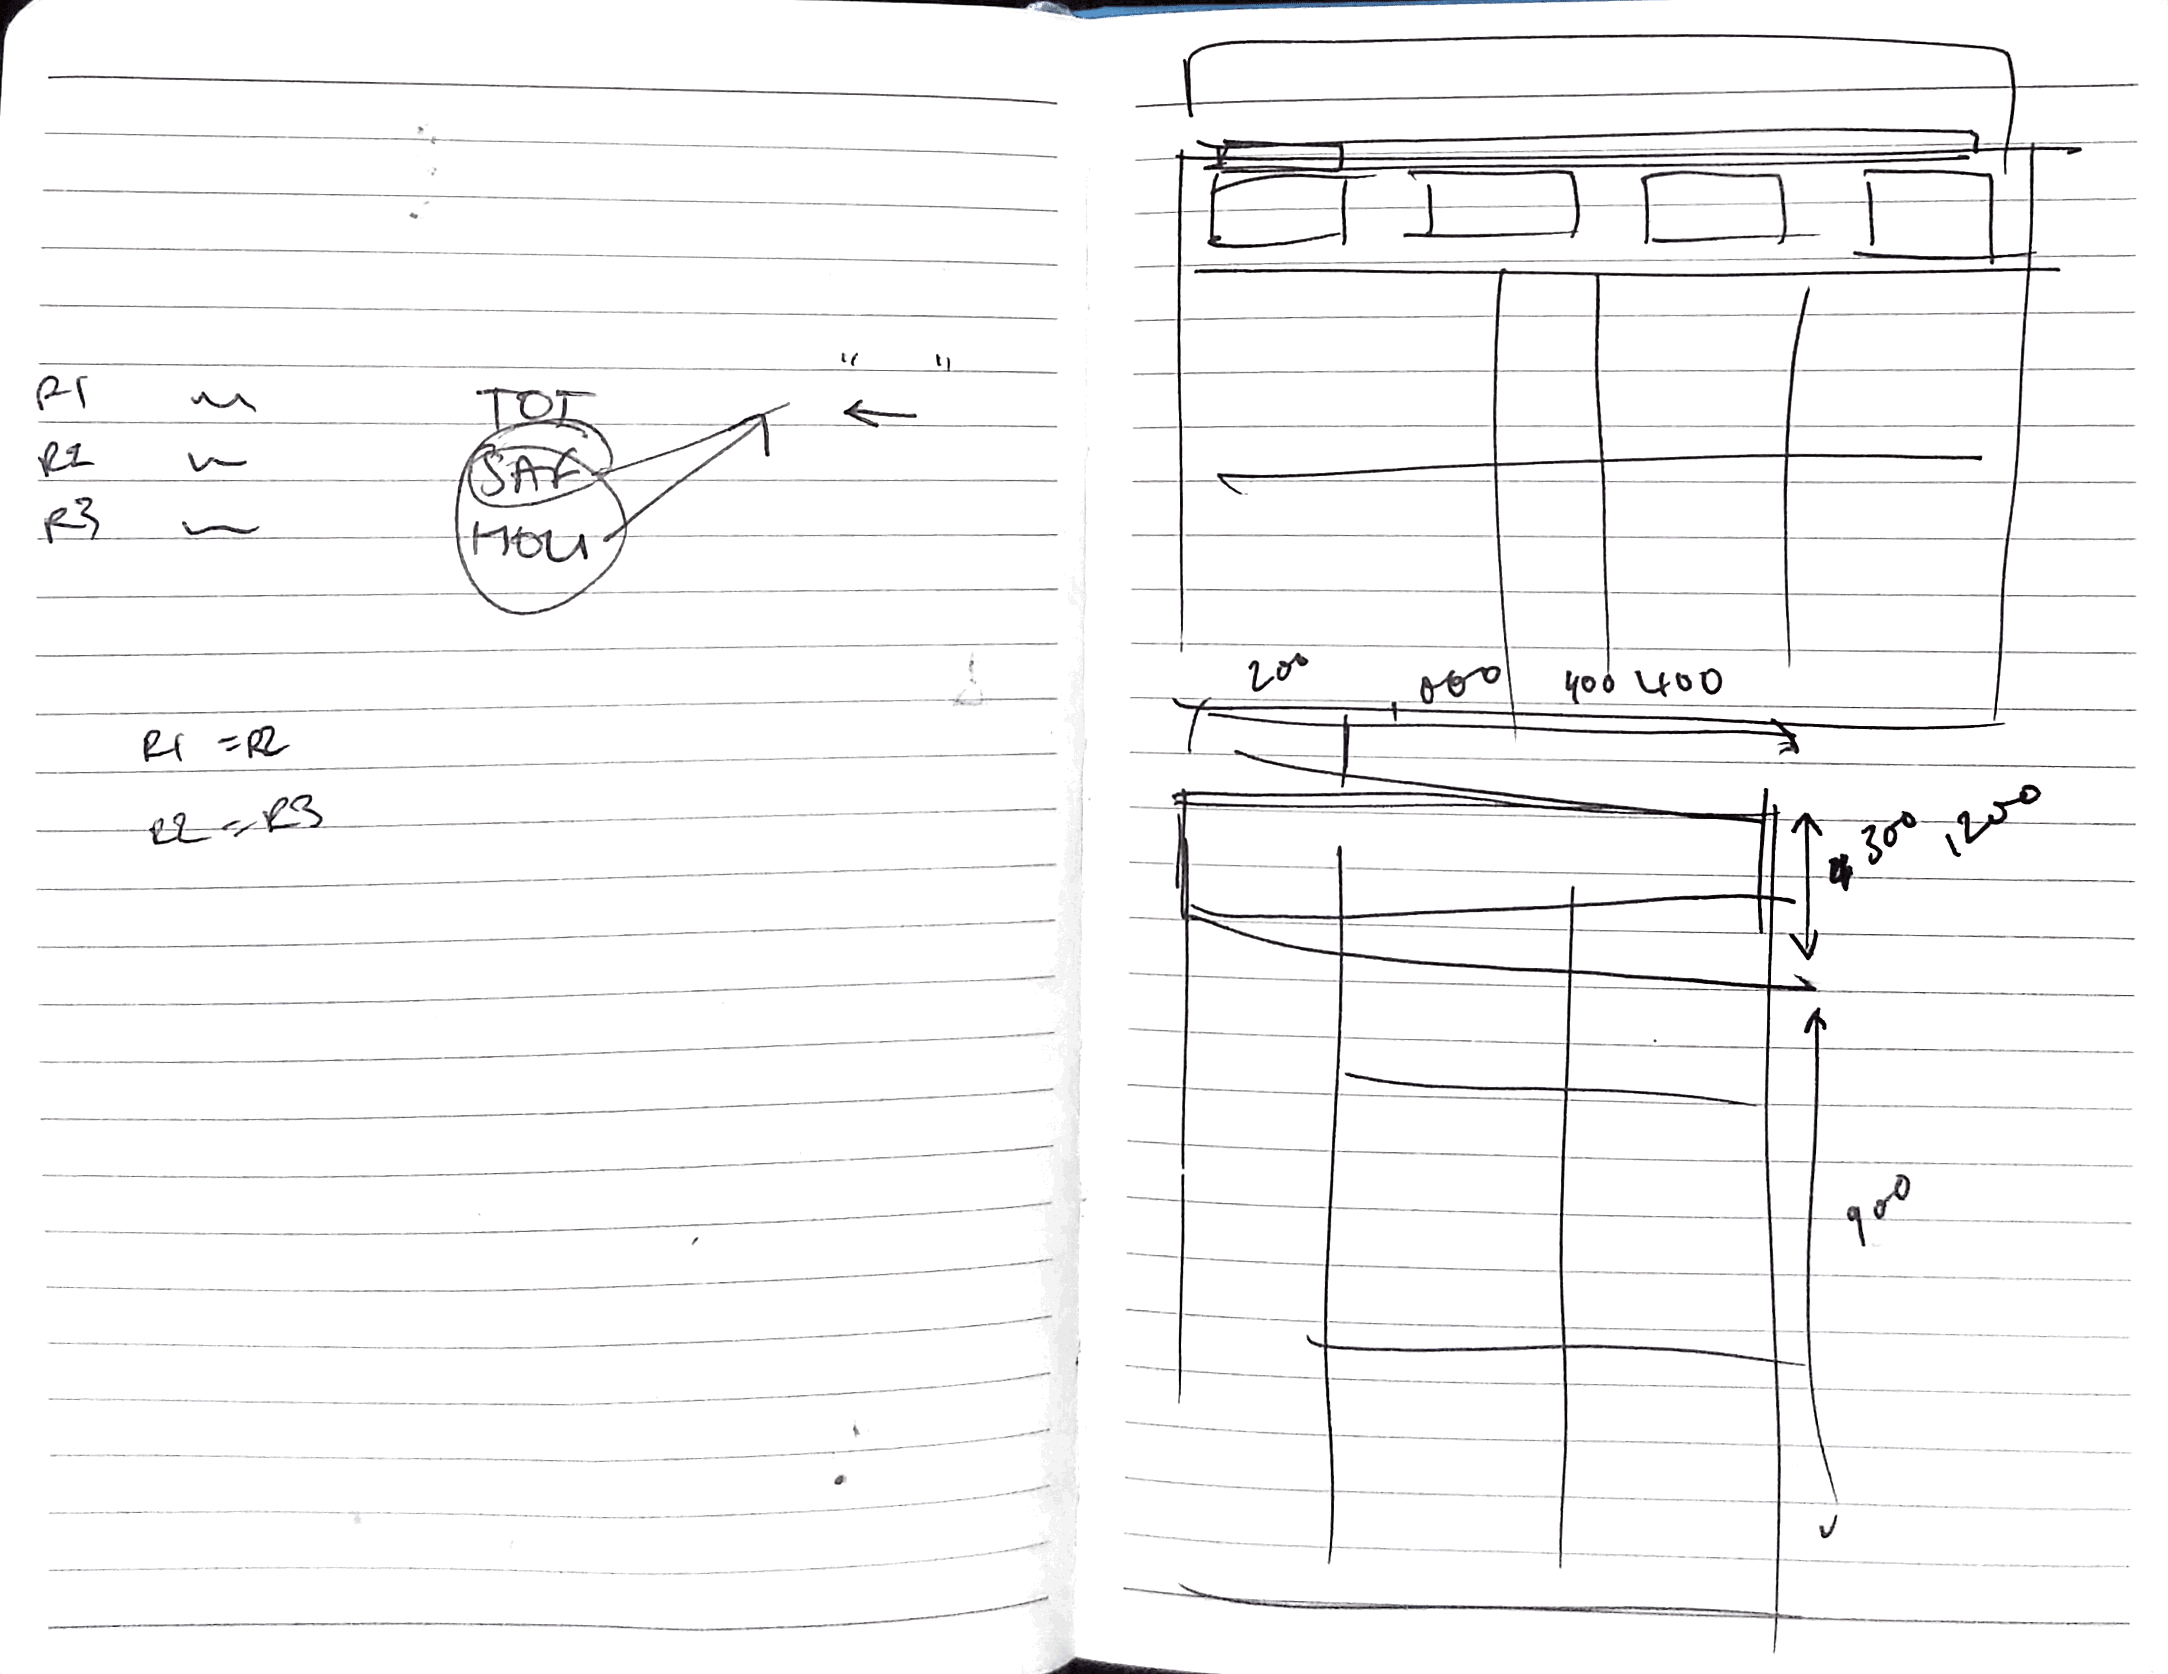 "  "
R1 TOT
R2 SAF
R3 HOLI
R1 = R2
R2 = R3
200 000 400 400
300 1200
900